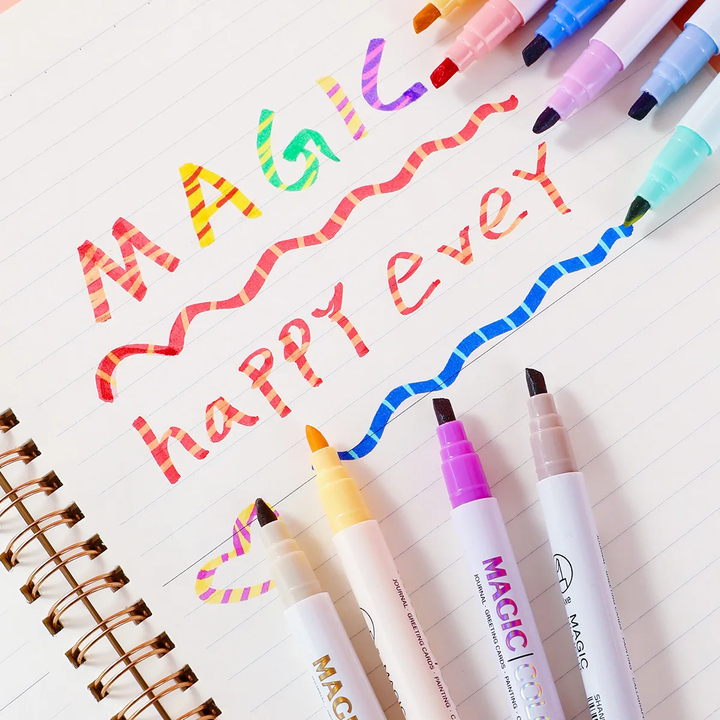 MAGIC
happy evey
MAGIC
JOURNAL · GREETING CARDS · PAINTING
MAGIC COL
JOURNAL · GREETING CARDS · PAINTING · C
MAGIC